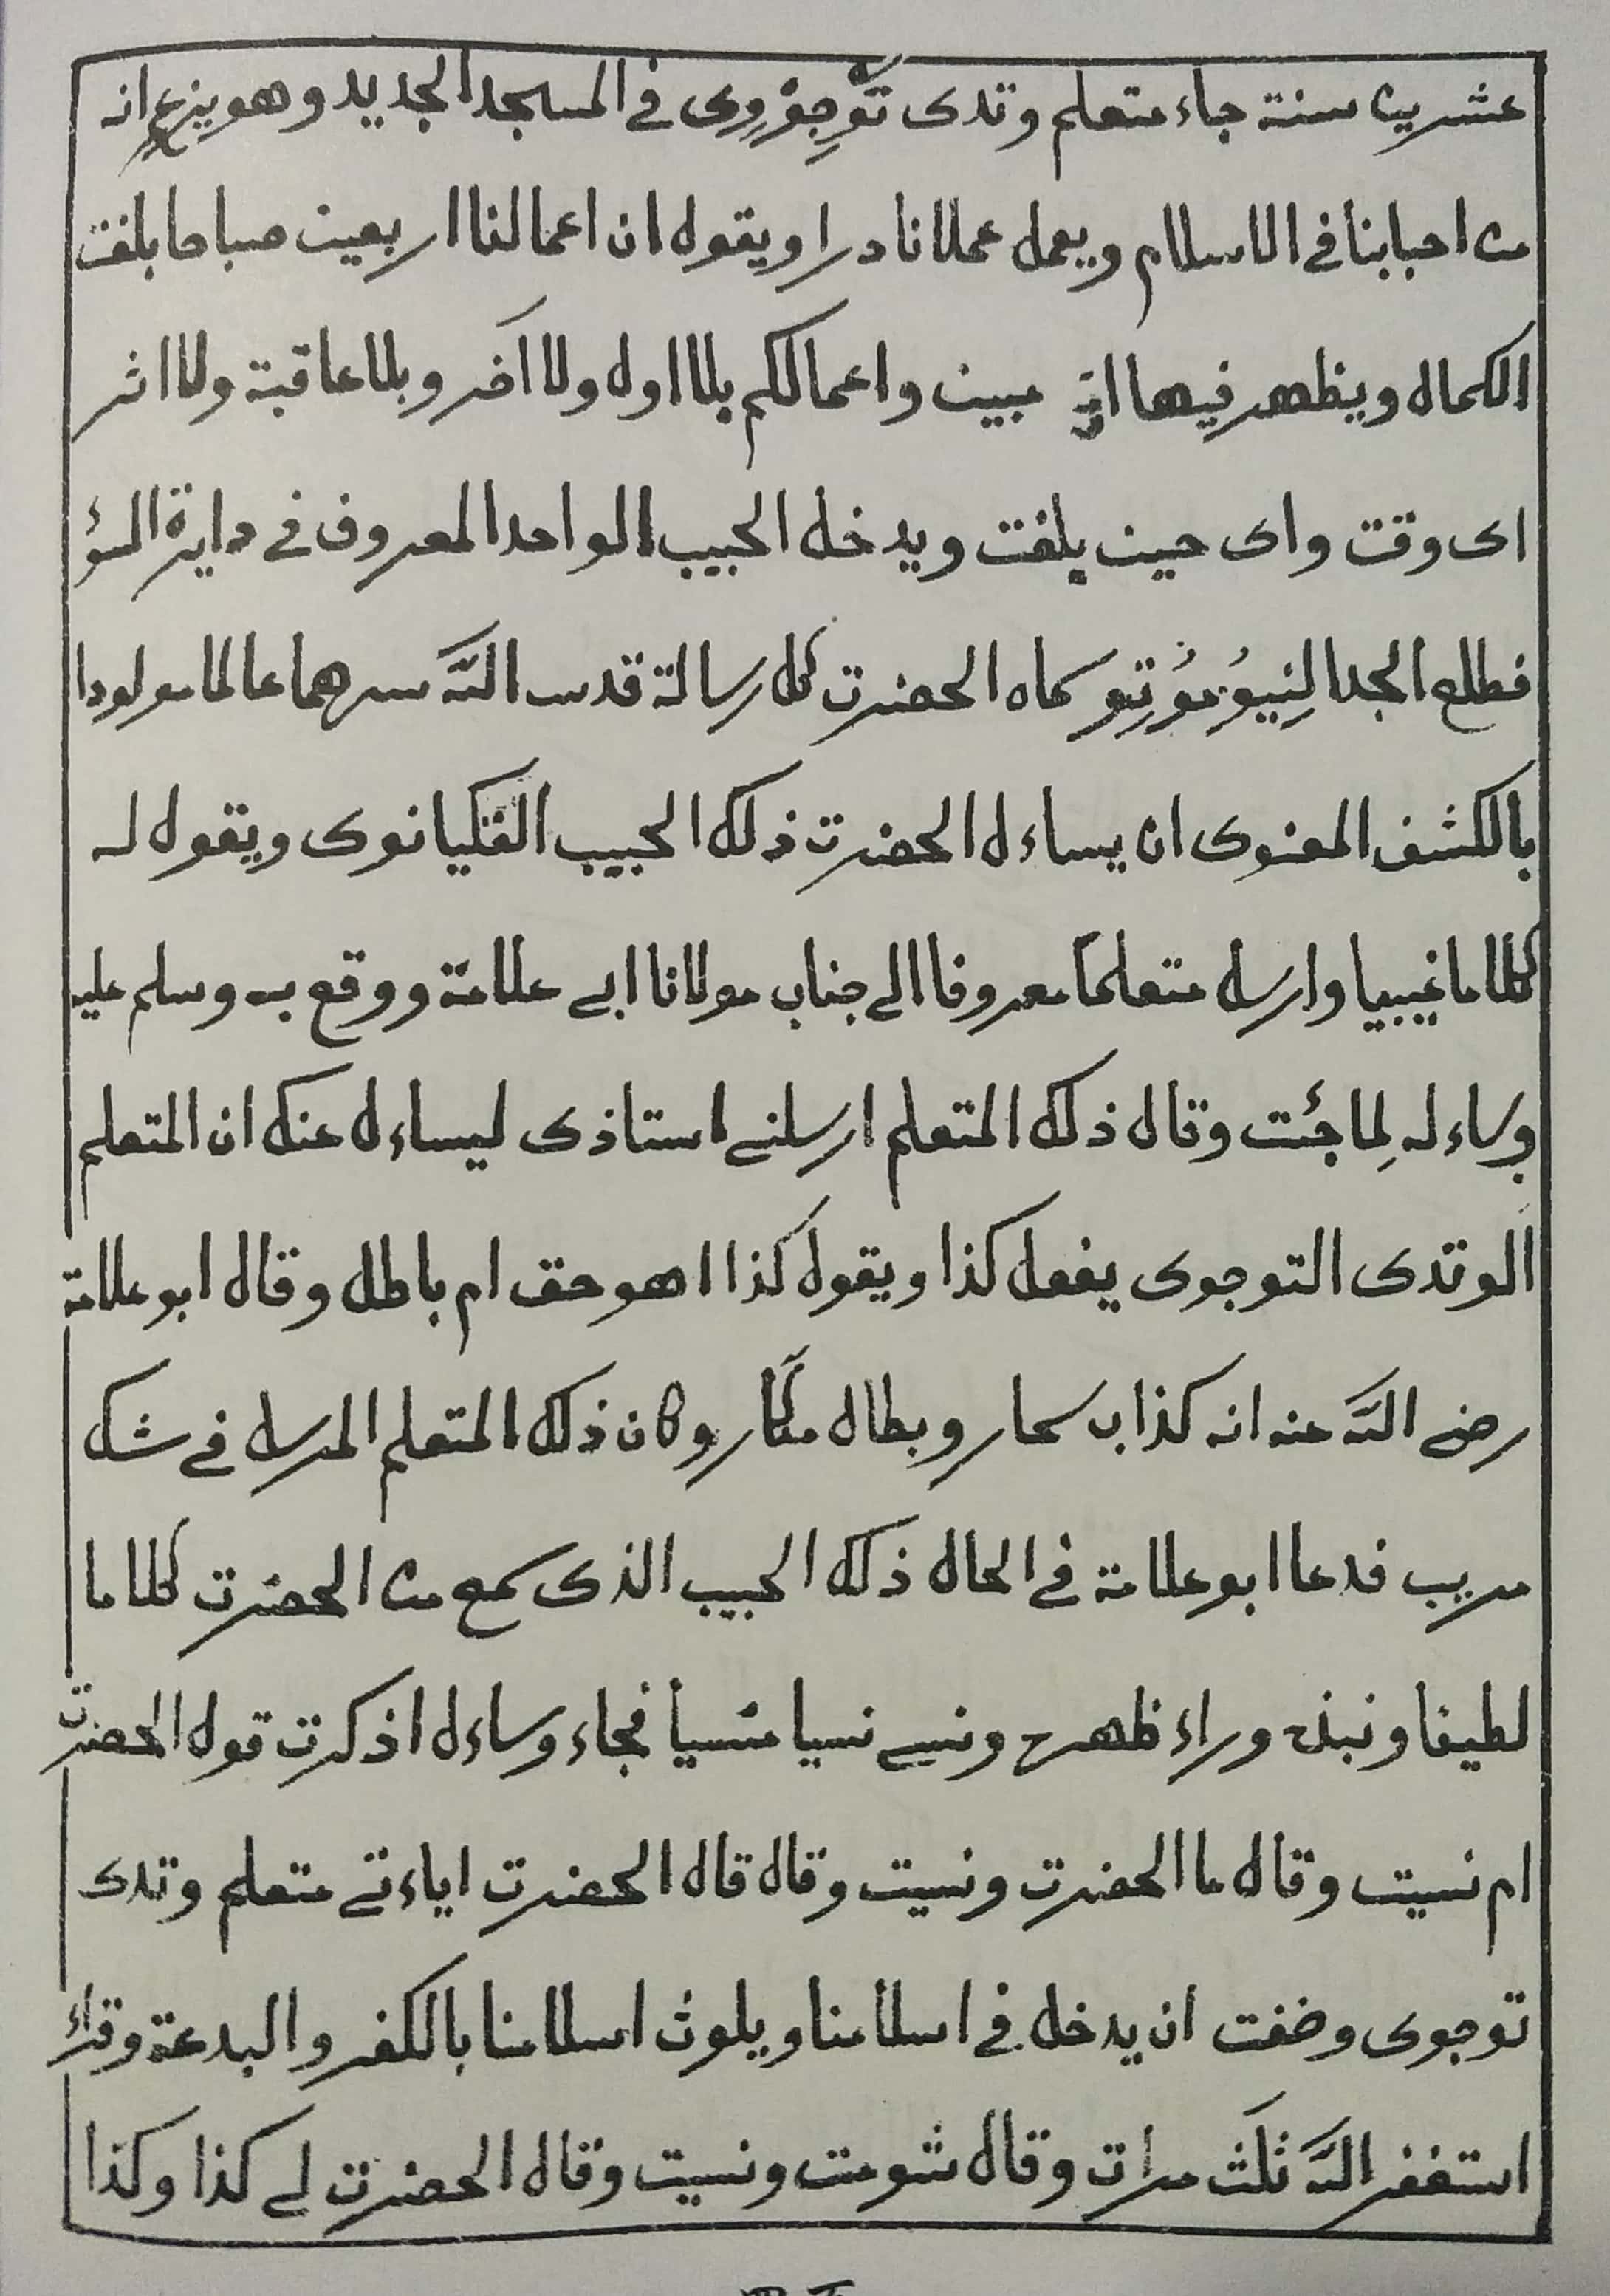 عشرين سنة جاء متعلم وتدى توجوروى في المسجد الجديد وهو يزعم انه
من احبابنا في الاسلام ويعمل عملا نادرا ويقول ان اعمالنا اربعين صباحا بلغت
الكمال ويظهر فيها اثر مبين واعمالكم بلا اول ولا اخر وبلا عاقبة ولا اثر
اى وقت واى حين بلغت ويدخل الحبيب الواحد المعروف في دايرة السؤ
فطلع الجد سماه الحضرت كل رسالة قدس الله سرهما عالما مولودا
بالكشف المعنوى ان يساءل الحضرت ذلك الحبيب ويقول له
كلاما غيبيا وارسل متعلما معروفا الى جناب مولانا ابى علامة ووقع به وسلم عليه
وساءله لِما جئت وقال ذلك المتعلم ارسلنى استاذى ليساءل عنك ان المتعلم
الوتدى التوجوى يفعل كذا ويقول كذا اهو حق ام باطل وقال ابو علامة
رضى الله عنه انه كذاب سحار وبطال مكار وكان ذلك المتعلم المرسل في شك
مريب فدعا ابو علامة في الحال ذلك الحبيب الذى سمع من الحضرت كلاما
لطيفا ونبذه وراء ظهره ونسى نسيا منسيا فجاء وساءل اذكرت قول الحضرت
ام نسيت وقال ما الحضرت ونسيت وقال قال الحضرت اياءتى متعلم وتدى
توجوى وخفت ان يدخل في اسلامنا ويلوث اسلامنا بالكفر والبدعة وقراء
استغفر الله ثلث مرات وقال شومت ونسيت وقال الحضرت لى كذا وكذا